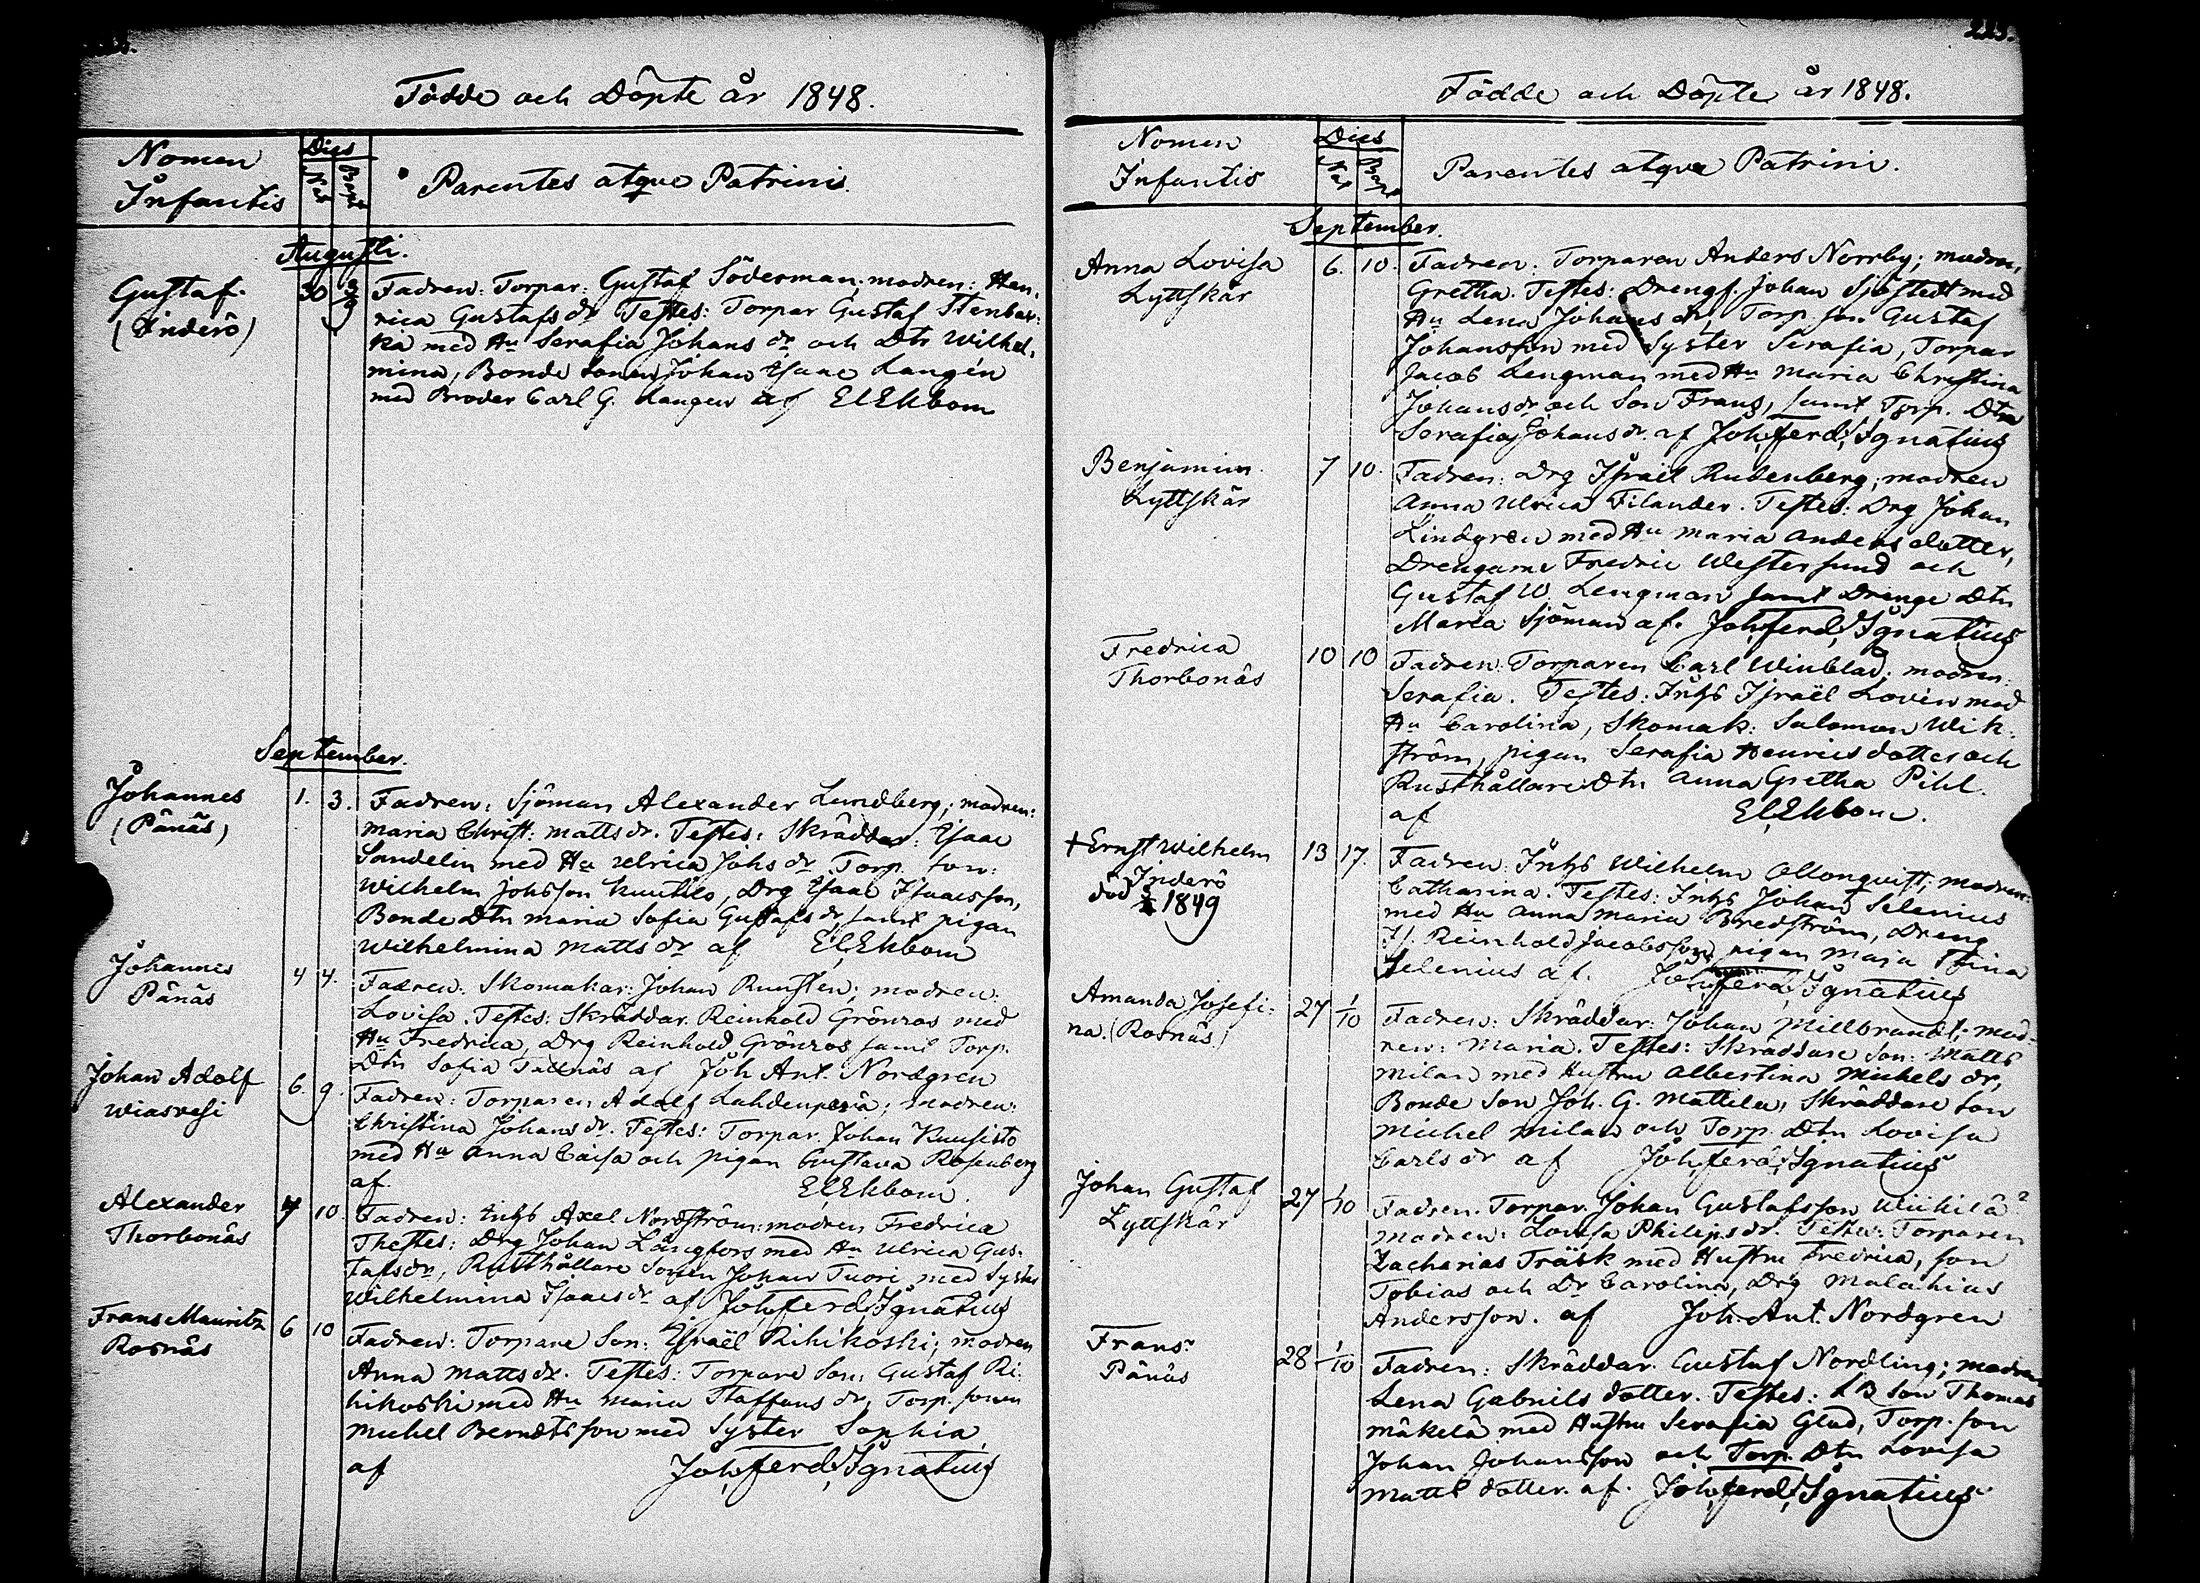 Födde och Döpte år 1848.
Nomen
Infantis
Dies
Nat
Bapt
Parentes atque Patrini.
Augusti.
Gustaf
(Inderö)
30 3/9
Fadren: Torpar: Gustaf Söderman; modren: Hen-
rica Gustafs dr Testes: Torpar Gustaf Stenbac-
ka med Hu Serafia Johans dr och Dtr Wilhel-
mina, Bonde sonen Johan Isaac Langén
med Broder Carl G. Langen af El Ekbom
September.
Johannes
(Pänäs)
1. 3.
Fadren: Sjöman Alexander Lundberg; modren:
Maria Christ: Matts dr. Testes: Skräddar: Isaac
Sandelin med Hu Ulrica Johs dr Torp. son:
Wilhelm Johsson Kuutilo, Drg Isaac Isaacsson,
Bonde Dtr Maria Sofia Gustafs dr, samt pigan
Wilhelmina Matts dr af El Ekbom
Johannes
Pänäs
4 4.
Fadren. Skomakar: Johan Ruusten; modren:
Lovisa. Testes: Skräddar. Reinhold Grönroos med
Hu Fredrica, Drg Reinhold Grönros samt Torp.
Dtr Sofia af Joh Ant. Nordgren
Johan Adolf
Wiasvesi
6. 9.
Fadren: Torparen Adolf Lahdenperä; modren:
Christina Johans dr. Testes: Torpar. Johan Kuusisto
med Hu Anna Caisa och pigan Gustava Rosenberg
af El Ekbom.
Alexander
Thorbonäs
7 10.
Fadren: Inhs Axel Nordström: modren Fredrica
Thestes: Drg Johan Långfors med Hu Ulrica Gus-
tafs dr, Rusthållare Sonen Johan Tuori med Syster
Wilhelmina Isaacs dr af Joh. Ferd. Ignatius
Frans Mauritz
Rosnäs
6 10
Fadren: Torpare Son: Israël Rihikoski; modren
Anna Matts dr. Testes: Torpare Son: Gustaf Ri-
hikoski med Hu Maria Staffans dr, Torp. sonen
Michel Berndtsson med Syster Sophia
af Joh. Ferd. Ignatius
Födde och Döpte år 1848.
Nomen
Infantis
Dies
Nat
Bapt
Parentes atque Patrini.
September.
Anna Lovisa
Lyttskär
6. 10.
Fadren: Torparen Anders Norrby; modren,
Gretha. Testes: Drengs. Johan Sjöstedt med
Hu Lena Johans dr, Torp. son Gustaf
Johansson med Syster Serafia, Torpar
Jacob Lengman med Hu Maria Christina
Johans dr och Son Frans, samt Torp. Dtr
Serafia Johans dr. af Joh. Ferd. Ignatius
Benjamin
Lyttskär
7 10.
Fadren: Drg Israël Rudenberg; modren
Anna Ulrica Filander. Testes: Drg Johan
Lindgren med Hu Maria Anders dotter,
Drengarne Fredric Westersund och
Gustaf W. Lengman samt Drenge Dtr
Maria Sjöman af. Joh. Ferd. Ignatius
Fredrica
Thorbonäs
10 10
Fadren: Torparen Carl Winblad; modren:
Serafia. Testes: Inhs Israël Lovén med
Hu Carolina, Skomak: Salomon Wik-
ström, pigan Serafia Henrics dotter och
Rusthållare Dtr Anna Gretha Pihl.
af El Ekbom.
+ Ernst Wilhelm
Inderö
död 1849
13 17.
Fadren: Inhs Wilhelm Ollonqvist; modren:
Catharina. Testes: Inhs Johan Selenius
med Hu Anna Maria Bredström, Dreng
Is. Reinhold Jacobsson, pigan Maja Stina
Selenius af. Joh. Ferd. Ignatius
Amanda Josefi-
na. (Rosnäs.)
27 1/10
Fadren: Skräddar: Johan Millbrandt; mod-
ren: Maria. Testes: Skräddare Son: Matts
Milan med Hustru Albertina Michels dr,
Bonde Son Joh. G. Mattila, Skräddare son
Michel Milan och Torp. Dtr Lovisa
Carls dr af Joh. Ferd. Ignatius
Johan Gustaf
Lyttskär
27 1/10
Fadren. Torpar. Johan Gustafsson Wiikilä?
modren: Lovisa Philips dr. Testes: Torparen
Zacharias Träsk med Hustru Fredrica, son
Tobias och Dr Carolina, Drg Malachias
Andersson. af Joh. Ant. Nordgren
Frans
Pänäs
28 1/10
Fadren: Skräddar. Gustaf Nordling; modren
Lena Gabriels dotter. Testes: LB son Thomas
Mäkelä med Hustru Serafia Glad, Torp. son
Johan Johansson och Torp. Dtr Lovisa
Matts dotter. af. Joh. Ferd. Ignatius